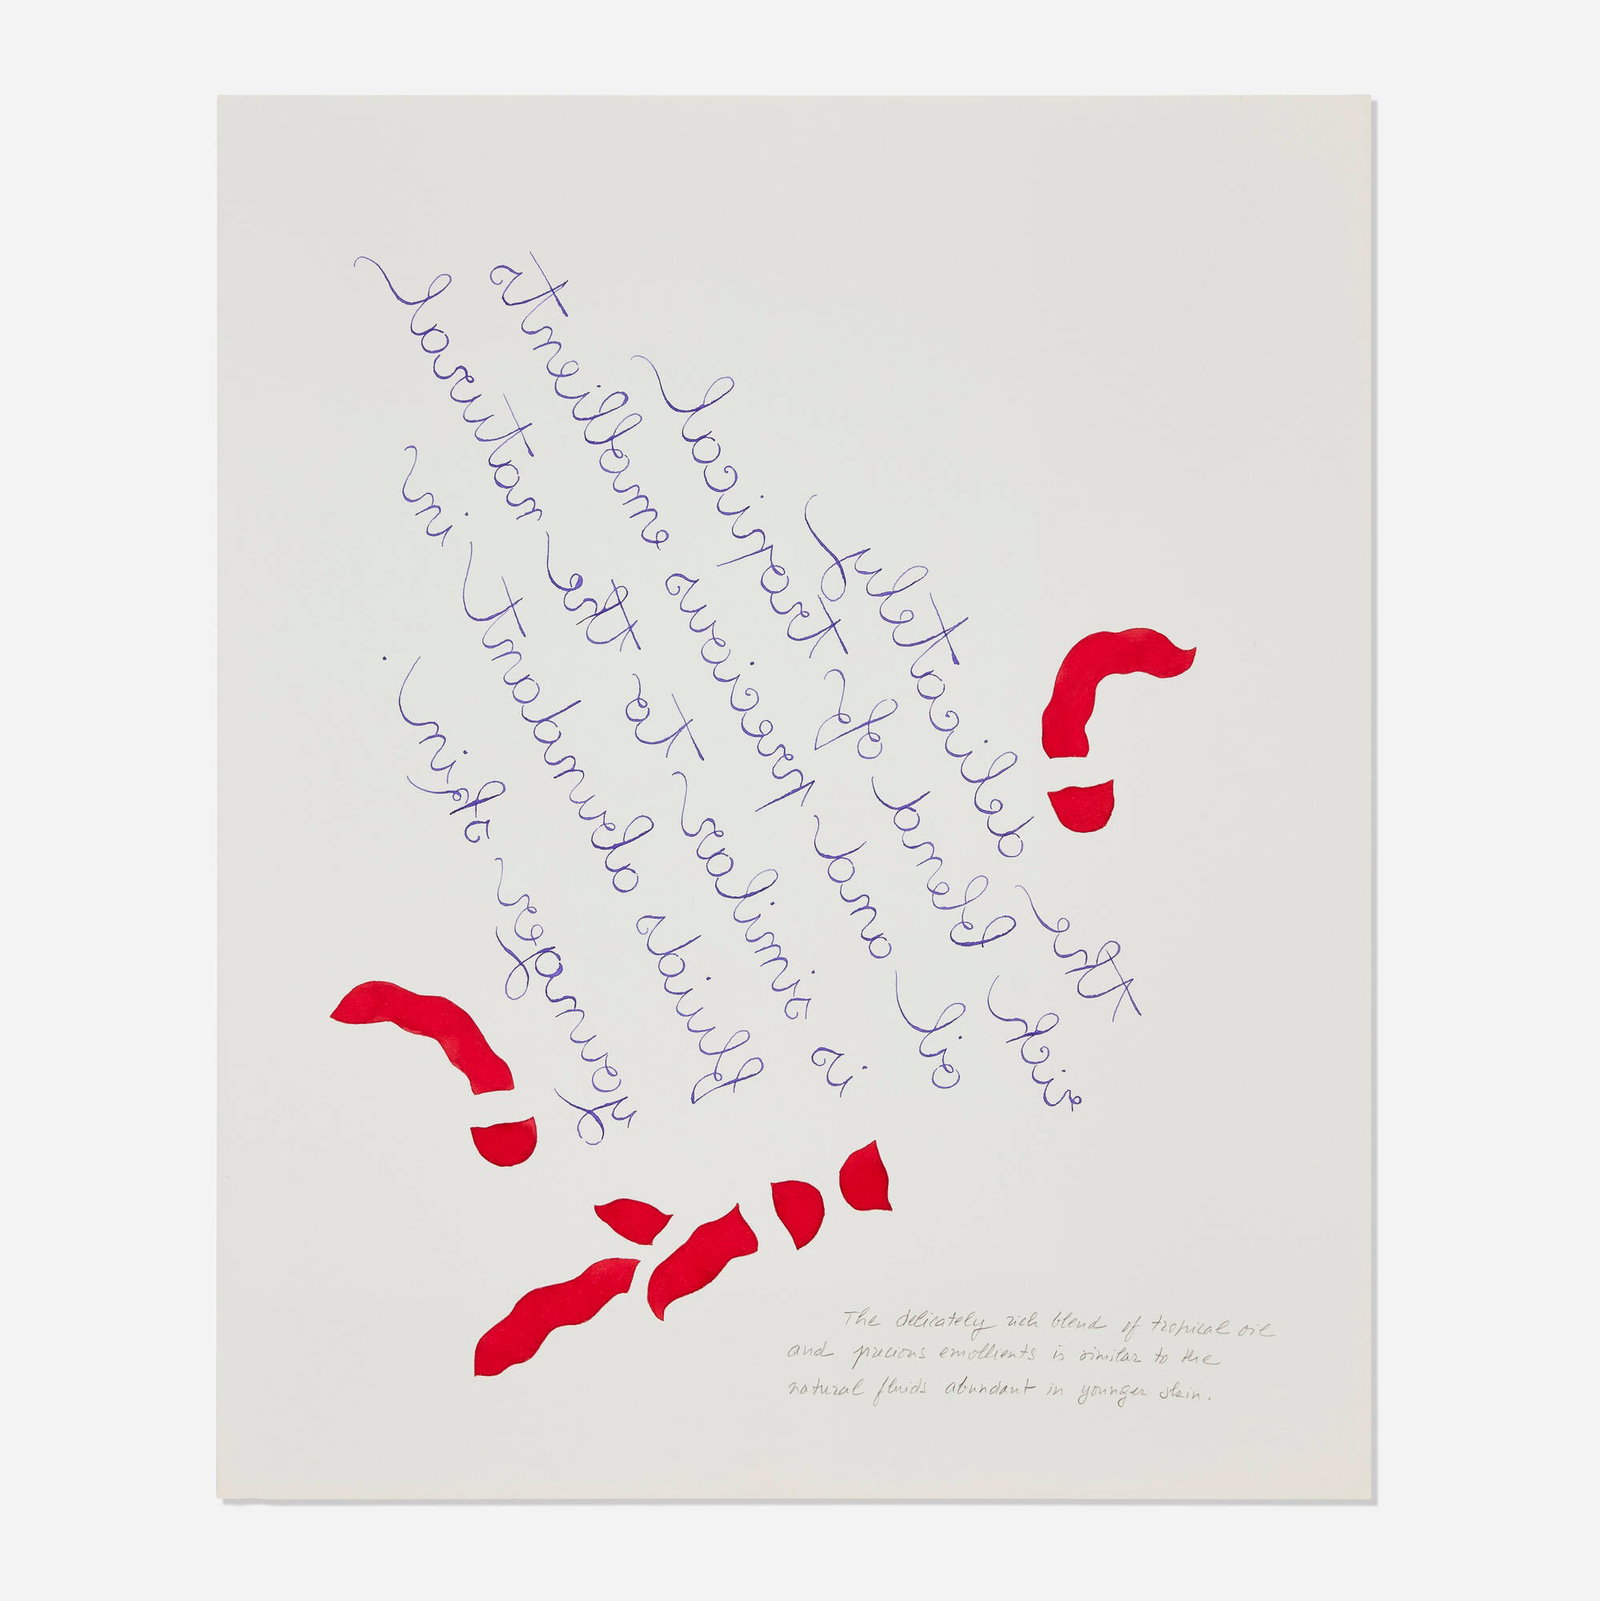 The delicately
rich blend of tropical
oil and precious emollients
is similar to the natural
fluids abundant in
younger skin.
The delicately rich blend of tropical oil
and precious emollients is similar to the
natural fluids abundant in younger skin.